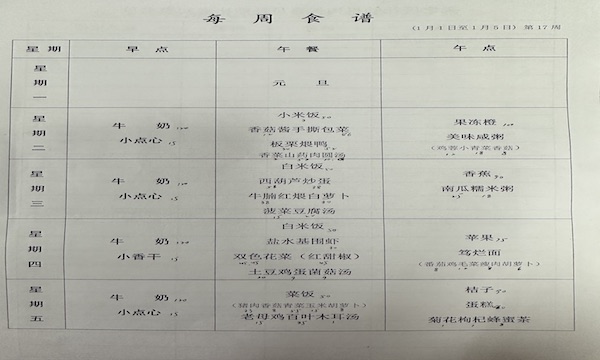 每周食谱
(1月1日至1月5日) 第17周
星期 早点 午餐 午点
星期一 元旦
星期二
牛奶
小点心 15
小米饭
香菇酱手撕包菜
板栗煨鸭
香菜山药肉圆汤
果冻橙
美味咸粥
(鸡蓉小青菜香菇)
星期三
牛奶
小点心 15
白米饭
西葫芦炒蛋
牛腩红煨白萝卜
菠菜豆腐汤
香蕉
南瓜糯米粥
星期四
牛奶
小香干 15
白米饭
盐水基围虾
双色花菜(红甜椒)
土豆鸡蛋菌菇汤
苹果
笃烂面
(番茄鸡毛菜瘦肉胡萝卜)
星期五
牛奶
小点心 15
菜饭
(猪肉香菇青菜玉米胡萝卜)
老母鸡百叶木耳汤
桔子
蛋糕
菊花枸杞蜂蜜茶